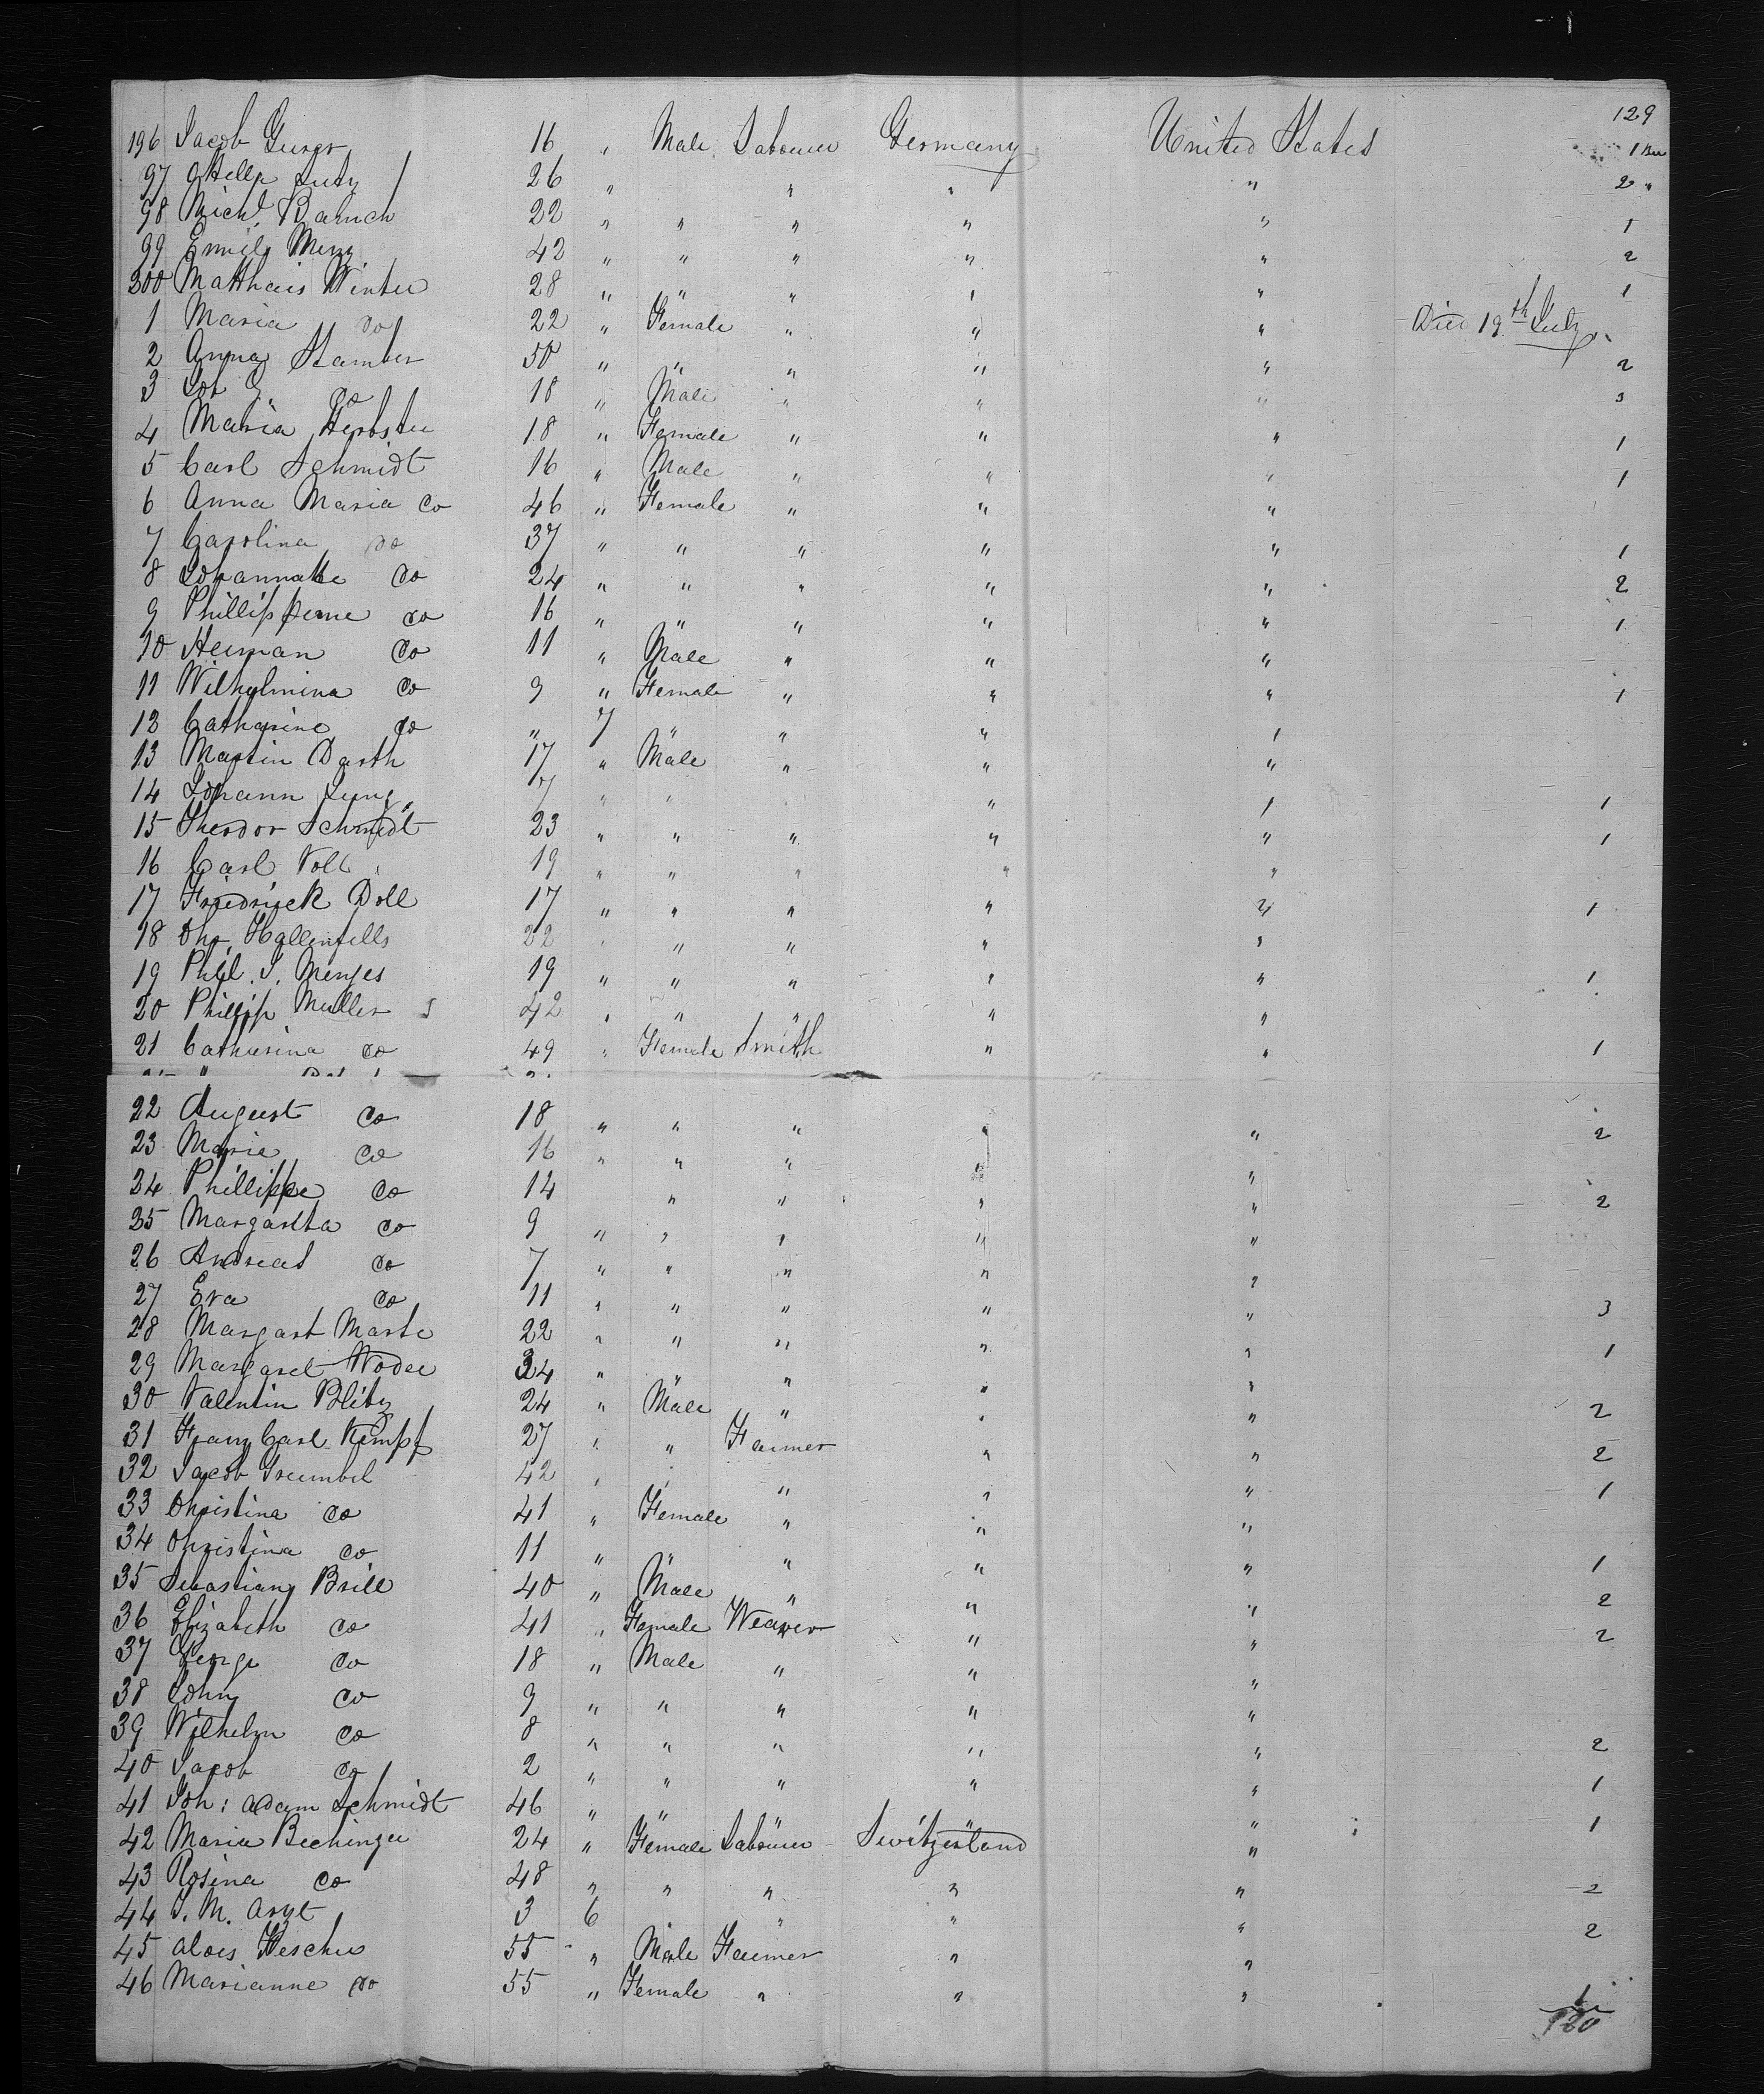 129
196 Jacob Guser 16 " Male Labourer Germany United States 1 Box
97 Luty 26 " " " " 2 "
98 Mich. Baruch 22 " " " " " 1
99 Emily Merz 42 " " " " " 2
300 Matthais Winter 28 " " " " " 1
1 Maria do 22 " Female " " " Died 19th July
2 Anna Stamber 50 " " " " " 2
3 Joh G. do 18 " Male " " " 3
4 Maria Herbster 18 " Female " " " 1
5 Carl Schmidt 16 " Male " " " 1
6 Anna Maria do 46 " Female " " "
7 Carolina do 37 " " " " " 1
8 Johannatte do 24 " " " " " 2
9 Phillippeme do 16 " " " " " 1
10 Herman do 11 " Male " " "
11 Wilhylmina do 9 " Female " " " 1
12 Catharine do " 7 " " " "
13 Martin Darth 17 " Male " " "
14 Johann Jung 7 " " " " 1
15 Theodor Schmidt 23 " " " " " 1
16 Carl Voll 19 " " " " "
17 Friedrijck Doll 17 " " " " " 1
18 Chr. Hallenfells 22 " " " " "
19 Phil. J. Menges 19 " " " " " 1
20 Phillip Muller 42 " " " " "
21 Catharina do 49 " Female Smith " " 1
22 August do 18 " " " " " 2
23 Marie do 16 " " " " "
24 Phillippe do 14 " " " " 2
25 Margaretta do 9 " " " " "
26 Andreas do 7 " " " " "
27 Eva do 11 " " " " " 3
28 Margart Marte 22 " " " " "
29 Margaret Woder 34 " " " " " 1
30 Valentin Blitz 24 " Male " " " 2
31 Franz Carl Kempf 27 " " Farmer " " 2
32 Jacob Trumbel 42 " " " " " 1
33 Christina do 41 " Female " " "
34 Christina do 11 " " " " "
35 Sebastian Brill 40 " Male " " " 1
36 Elizabeth do 41 " Female Weaver " " 2
37 George do 18 " Male " " " 2
38 John do 9 " " " " "
39 Wilhelm do 8 " " " " "
40 Jacob do 2 " " " " " 2
41 Joh: Adam Schmidt 46 " " " " 1
42 Maria Bechinger 24 " Female Labourer Switzerland " 1
43 Rosina do 48 " " " " "
44 J. M. Arzt 3 6 " " " " 2
45 Alois Heschu 55 " Male Farmer " " 2
46 Marianne do 55 " Female " " " 1
130